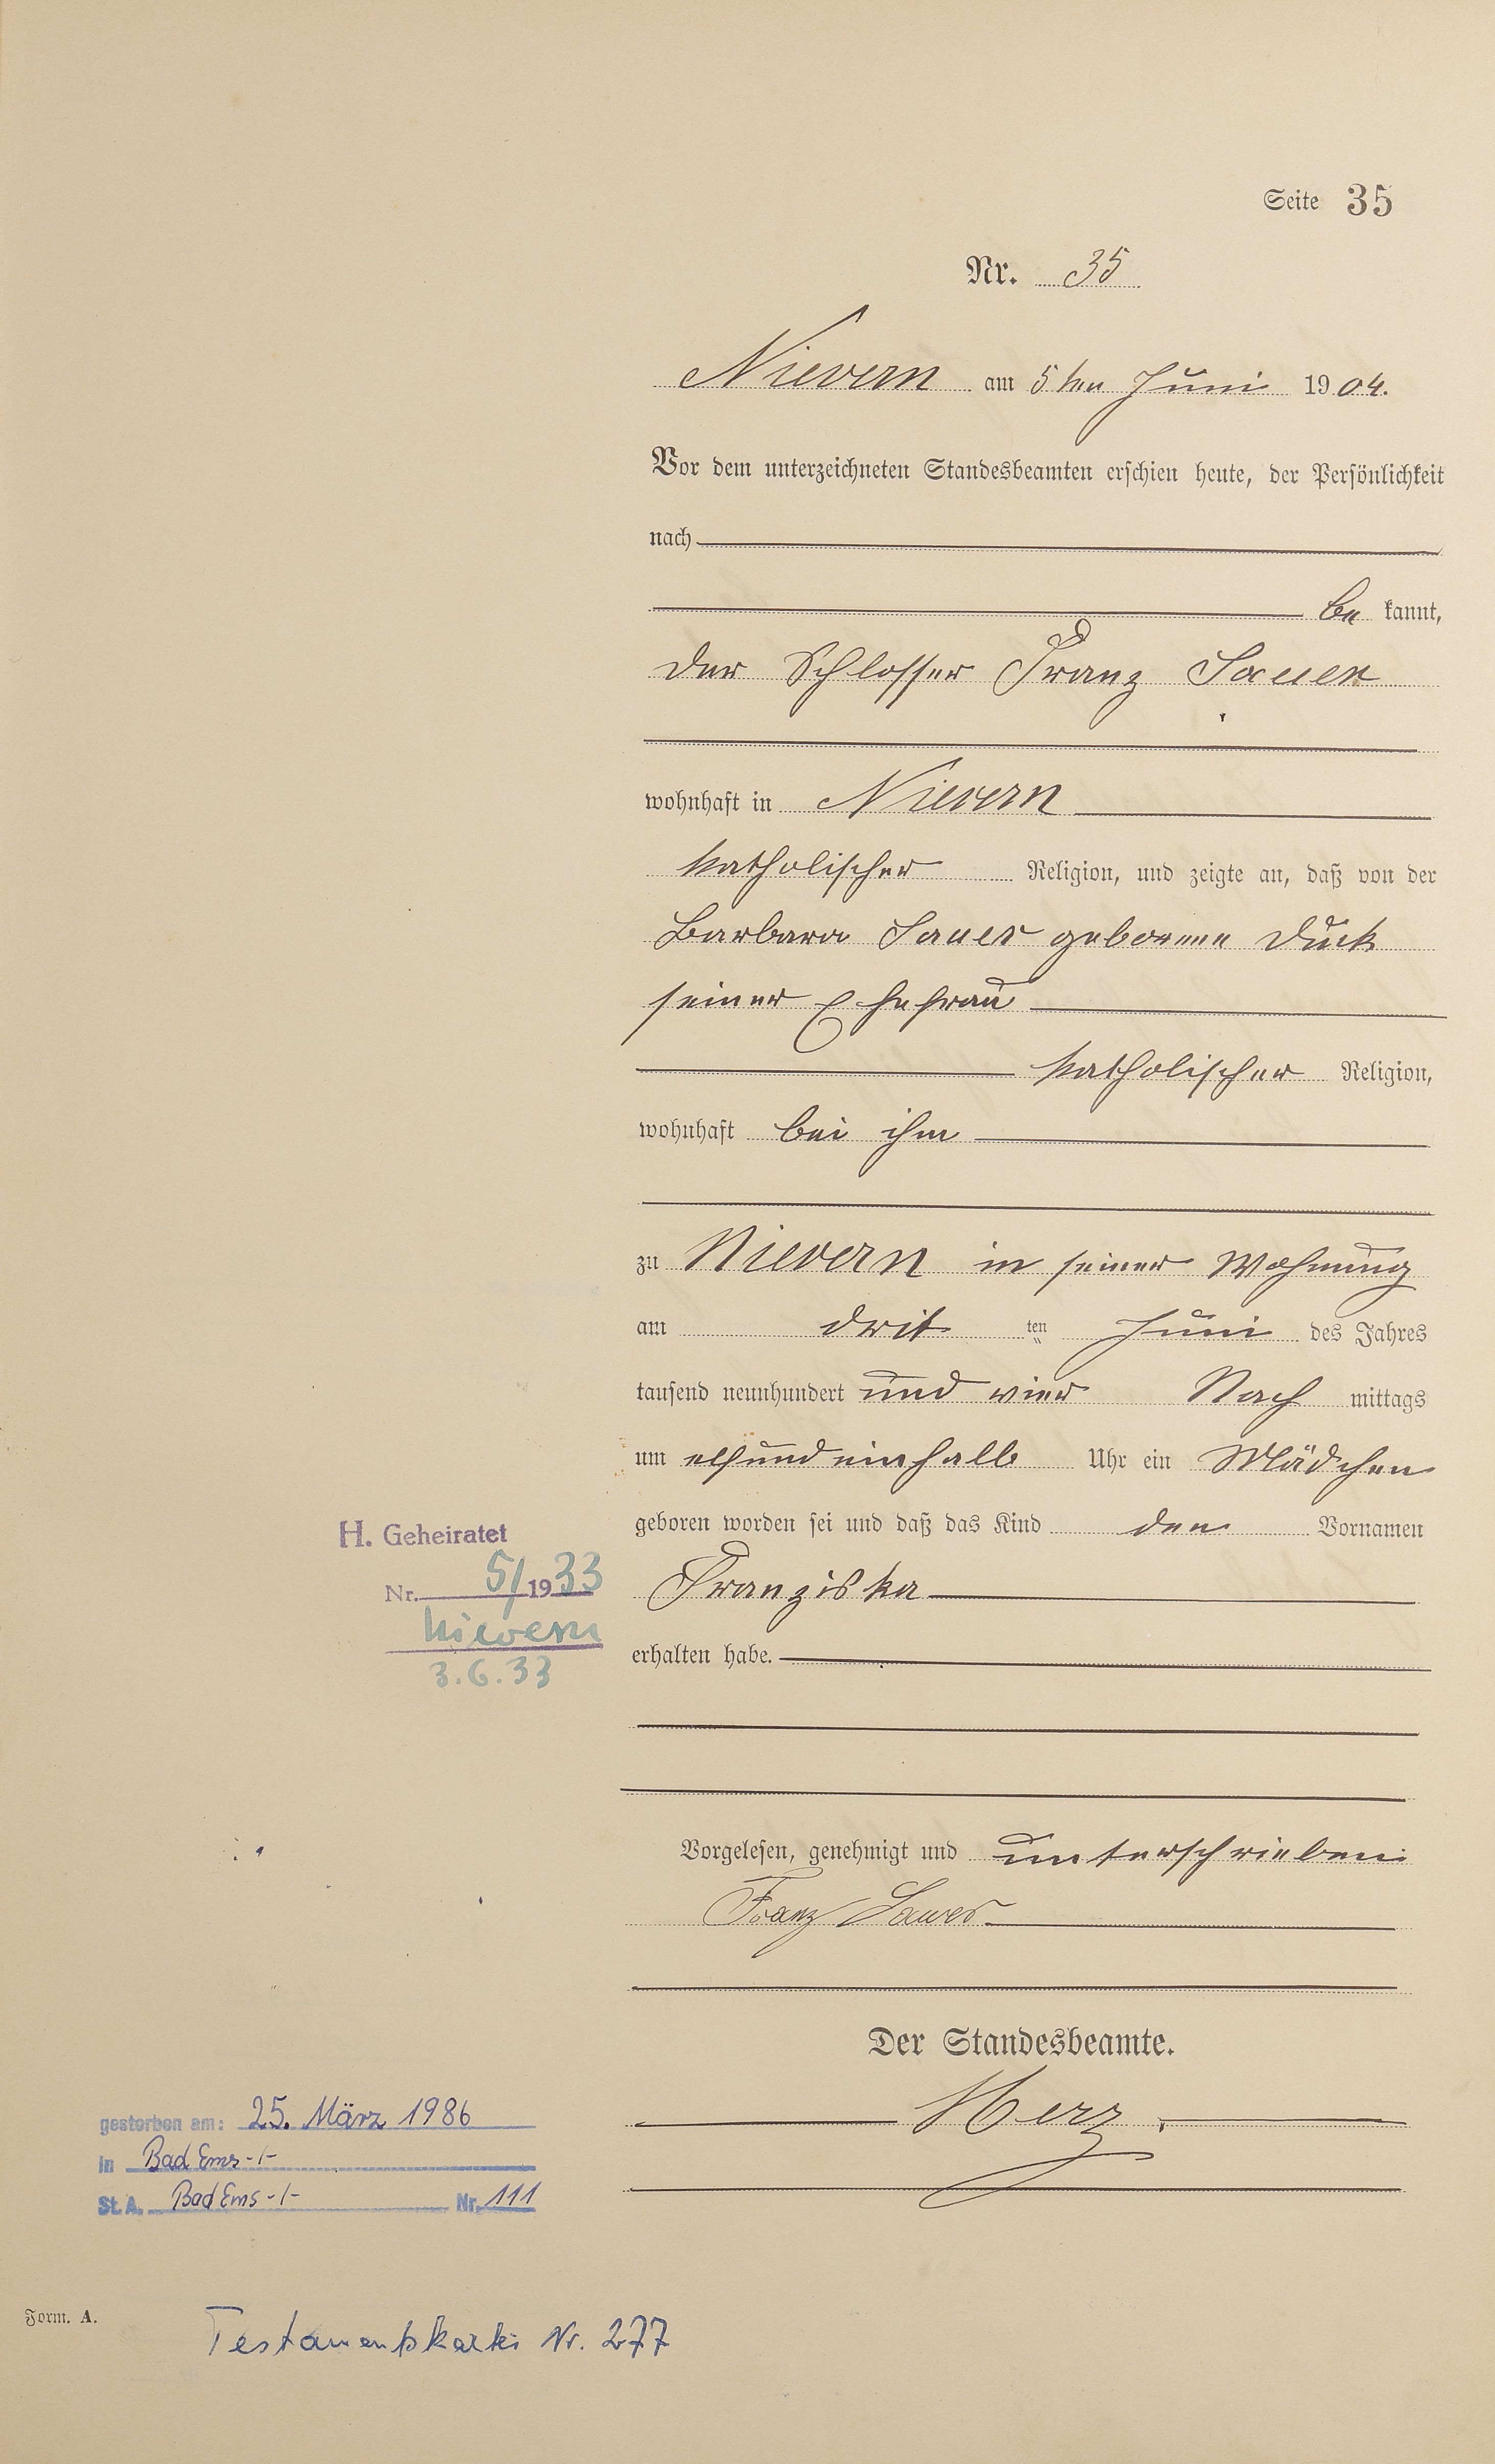 Seite 35
Nr. 35
Nievern am 5ten Juni 1904.
Vor dem unterzeichneten Standesbeamten erschien heute, der Persönlichkeit
nach
be kannt,
der Schlosser Franz Sauer
wohnhaft in Nievern
katholischer Religion, und zeigte an, daß von der
Barbara Sauer geborene Dück
seiner Ehefrau
katholischer Religion,
wohnhaft bei ihm
zu Nievern in seiner Wohnung
am drit ten Juni des Jahres
tausend neunhundert und vier Nach mittags
um elfundeinhalb Uhr ein Mädchen
geboren worden sei und daß das Kind den Vornamen
Franziska
erhalten habe.
Vorgelesen, genehmigt und unterschrieben
Franz Sauer
Der Standesbeamte.
Herz.
H. Geheiratet
Nr. 5/1933
Nievern
3.6.33
gestorben am: 25. März 1986
in Bad Ems -/-
St. A. Bad Ems -/- Nr. 111
Form. A.
Testamentskartei Nr. 277